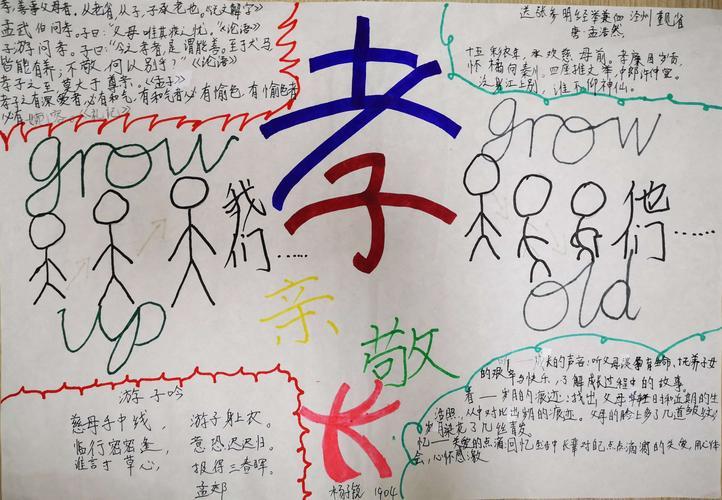 孝,善事父母者。从老省,从子,子承老也。《说文解字》
孟武伯问孝,子曰:“父母唯其疾之忧。”《论语》
子游问孝。子曰:“今之孝者,是谓能养。至于犬马
皆能有养;不敬,何以别乎?”《论语》
孝子之至,莫大于尊亲。《孟子》
孝子之有深爱者,必有和气,有和气者必有愉色,有愉色者
必有
送张参明经举兼向泾州觐省
唐·孟浩然
十五彩衣年,承欢慈母前。孝廉因岁贡,
怀橘向秦川。四座推文举,中郎许仲宣。
泛舟江上别,谁不仰神仙。
孝
grow
我们……
up
grow
他们……
old
亲
敬
长
游子吟
慈母手中线,游子身上衣。
临行密密逢,意恐迟迟归。
谁言寸草心,报得三春晖。
孟郊
的声音:听父母
的艰辛与快乐,了解成长过程中的故事。
岁月的痕迹:找出父母年轻时和近期的生
活照,从中对比出岁月的痕迹。父母的脸上多了几道皱纹,
岁月染花了几丝青发
忆——
会,心怀感激
1904